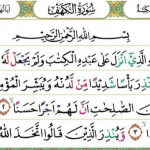 سورة الكهف
بسم الله الرحمن الرحيم
أنزل على عبده الكتب ولم يجعل له
بأسا شديدا من لدنه ويبشر المؤمنين
الصلحت أن لهم أجرا حسنا ٢
٣ وينذر الذين قالوا اتخذ الله